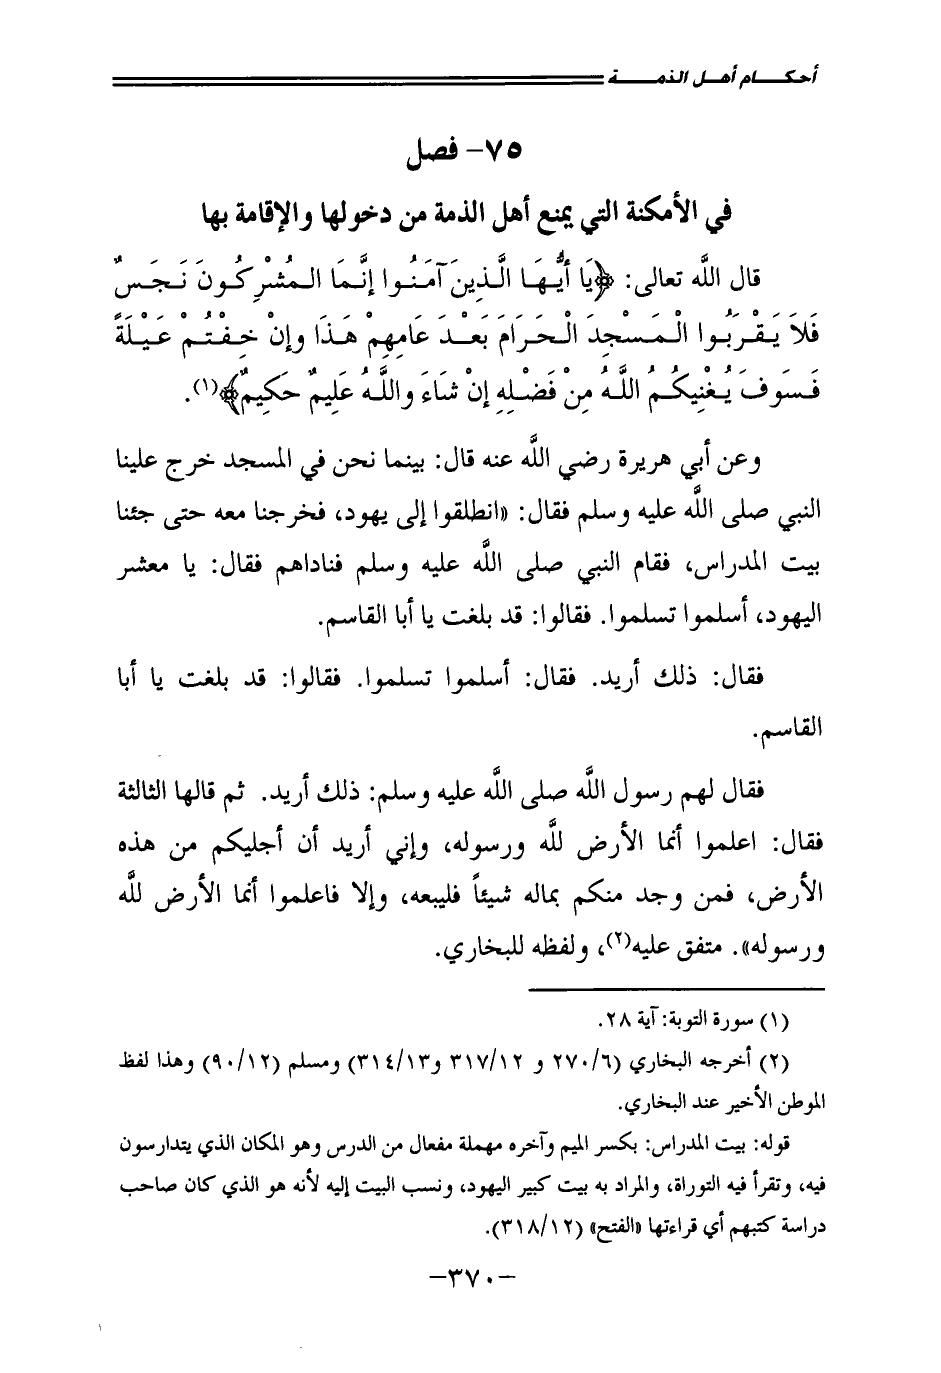 أحكـــام أهـل الذمـــة
٧٥- فصل
في الأمكنة التي يمنع أهل الذمة من دخولها والإقامة بها
قال اللَّه تعالى: ﴿يَا أَيُّهَا الَّذِينَ آمَنُوا إنَّمَا المُشْرِكُونَ نَجَسٌ
فَلاَ يَقْرَبُوا الْمَسْجِدَ الْحَرَامَ بَعْدَ عَامِهِمْ هَذَا وإنْ خِفْتُمْ عَيْلَةً
فَسَوفَ يُغْنِيكُمُ اللَّهُ مِنْ فَضْلِهِ إنْ شَاءَ واللَّهُ عَلِيمٌ حَكِيمٌ﴾(١).
وعن أبي هريرة رضي اللَّه عنه قال: بينما نحن في المسجد خرج علينا
النبي صلى اللَّه عليه وسلم فقال: «انطلقوا إلى يهود، فخرجنا معه حتى جئنا
بيت المدراس، فقام النبي صلى اللَّه عليه وسلم فناداهم فقال: يا معشر
اليهود، أسلموا تسلموا. فقالوا: قد بلغت يا أبا القاسم.
فقال: ذلك أريد. فقال: أسلموا تسلموا. فقالوا: قد بلغت يا أبا
القاسم.
فقال لهم رسول اللَّه صلى اللَّه عليه وسلم: ذلك أريد. ثم قالها الثالثة
فقال: اعلموا أنما الأرض للَّه ورسوله، وإني أريد أن أجليكم من هذه
الأرض، فمن وجد منكم بماله شيئاً فليبعه، وإلا فاعلموا أنما الأرض للَّه
ورسوله». متفق عليه(٢)، ولفظه للبخاري.
(١) سورة التوبة: آية ٢٨.
(٢) أخرجه البخاري (٢٧٠/٦ و ٣١٧/١٢ و٣١٤/١٣) ومسلم (٩٠/١٢) وهذا لفظ
الموطن الأخير عند البخاري.
قوله: بيت المدراس: بكسر الميم وآخره مهملة مفعال من الدرس وهو المكان الذي يتدارسون
فيه، وتقرأ فيه التوراة، والمراد به بيت كبير اليهود، ونسب البيت إليه لأنه هو الذي كان صاحب
دراسة كتبهم أي قراءتها «الفتح» (٣١٨/١٢).
-٣٧٠-